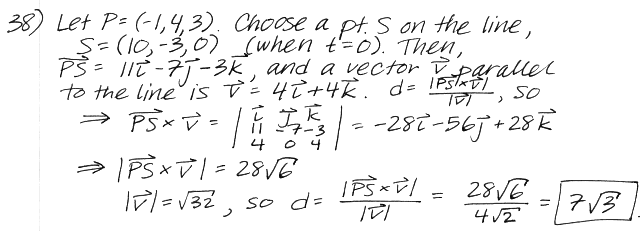 38) Let P = (-1,4,3). Choose a pt. S on the line,
S = (10,-3,0) (when t=0). Then,
PS⃗ = 11i⃗ - 7j⃗ - 3k⃗, and a vector v⃗ parallel
to the line is v⃗ = 4i⃗ + 4k⃗. d = |PS⃗ × v⃗| / |v⃗|, so
⇒ PS⃗ × v⃗ = | i⃗ j⃗ k⃗ | = -28i⃗ - 56j⃗ + 28k⃗
11 -7 -3
4 0 4
⇒ |PS⃗ × v⃗| = 28√6
|v⃗| = √32, so d = |PS⃗ × v⃗| / |v⃗| = 28√6 / 4√2 = 7√3.